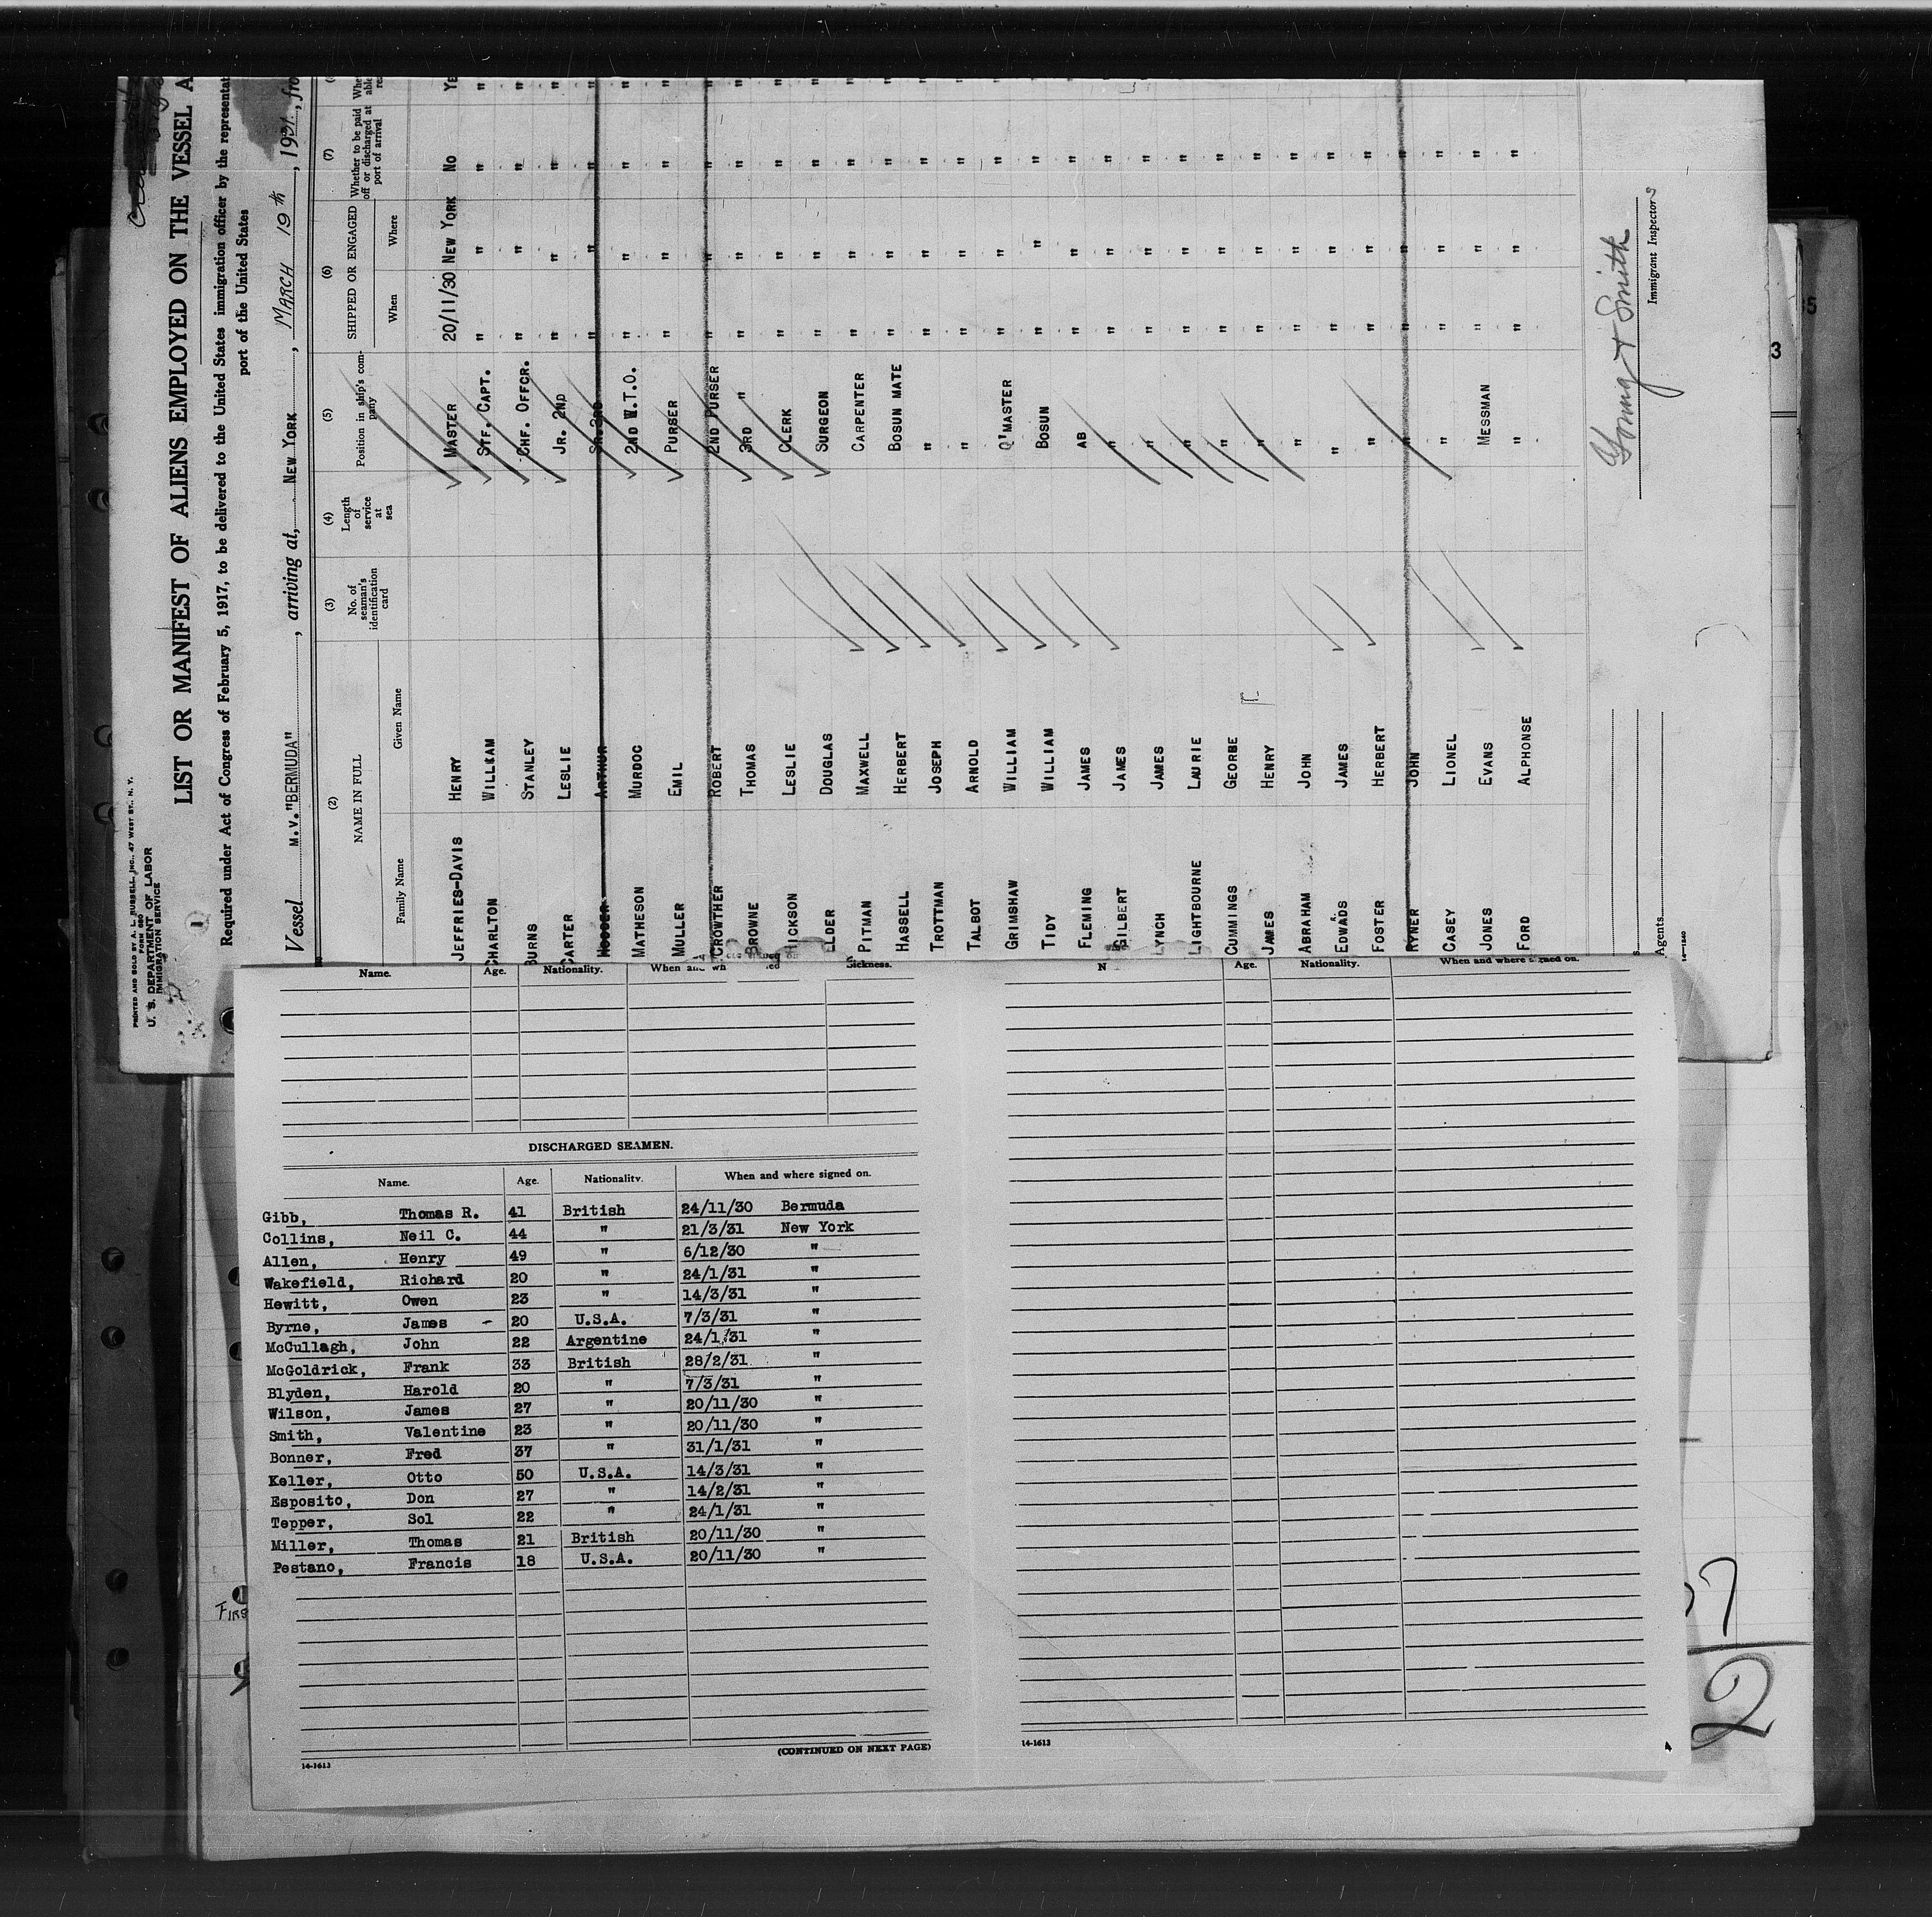 PRINTED AND SOLD BY A. L. RUSSELL, INC., 47 WEST ST., N. Y.
U. S. DEPARTMENT OF LABOR
FORM 680
IMMIGRATION SERVICE
1
LIST OR MANIFEST OF ALIENS EMPLOYED ON THE VESSEL A
Required under Act of Congress of February 5, 1917, to be delivered to the United States immigration officer by the representat
port of the United States
Vessel M.V. "BERMUDA", arriving at, NEW YORK, MARCH 19th, 1931, fro
(2) (3) (4) (5) (6) (7)
NAME IN FULL No. of seaman's identification card Length of service at sea Position in ship's company SHIPPED OR ENGAGED Whether to be paid off or discharged at port of arrival Whe able re
Family Name Given Name When Where
JEFFRIES-DAVIS HENRY MASTER 20/11/30 NEW YORK No YE
CHARLTON WILLIAM STF. CAPT. " " " "
BURNS STANLEY CHF. OFFCR. " " " "
CARTER LESLIE JR. 2ND " " " "
ARTHUR SR. 3RD " " " "
MATHESON MURDOC 2ND W.T.O. " " " "
MULLER EMIL PURSER " " " "
CROWTHER ROBERT 2ND PURSER " " " "
BROWNE THOMAS 3RD " " " " "
HICKSON LESLIE CLERK " " " "
ELDER DOUGLAS SURGEON " " " "
PITMAN MAXWELL CARPENTER " " " "
HASSELL HERBERT BOSUN MATE " " " "
TROTTMAN JOSEPH " " " " "
TALBOT ARNOLD " " " " "
GRIMSHAW WILLIAM Q'MASTER " " " "
TIDY WILLIAM BOSUN " " " "
FLEMING JAMES AB " " " "
GILBERT JAMES " " " " "
LYNCH JAMES " " " " "
LIGHTBOURNE LAURIE " " " " "
CUMMINGS GEORBE " " " " "
JAMES HENRY " " " " "
ABRAHAM JOHN " " " " "
EDWADS JAMES " " " " "
FOSTER HERBERT " " " " "
RYNER JOHN " " " " "
CASEY LIONEL " " " " "
JONES EVANS MESSMAN " " " "
FORD ALPHONSE " " " " "
Young & Smith
Immigrant Inspectors
Agents
14-1240
Name. Age. Nationality. When and wh Sickness.
DISCHARGED SEAMEN.
Name. Age. Nationality. When and where signed on.
Gibb, Thomas R. 41 British 24/11/30 Bermuda
Collins, Neil C. 44 " 21/3/31 New York
Allen, Henry 49 " 6/12/30 "
Wakefield, Richard 20 " 24/1/31 "
Hewitt, Owen 23 " 14/3/31 "
Byrne, James - 20 U.S.A. 7/3/31 "
McCullagh, John 22 Argentine 24/1/31 "
McGoldrick, Frank 33 British 28/2/31 "
Blyden, Harold 20 " 7/3/31 "
Wilson, James 27 " 20/11/30 "
Smith, Valentine 23 " 20/11/30 "
Bonner, Fred 37 " 31/1/31 "
Keller, Otto 50 U.S.A. 14/3/31 "
Esposito, Don 27 " 14/2/31 "
Tepper, Sol 22 " 24/1/31 "
Miller, Thomas 21 British 20/11/30 "
Pestano, Francis 18 U.S.A. 20/11/30 "
(CONTINUED ON NEXT PAGE)
14-1613
N Age. Nationality. When and where signed on.
14-1613
FIRS
3
2